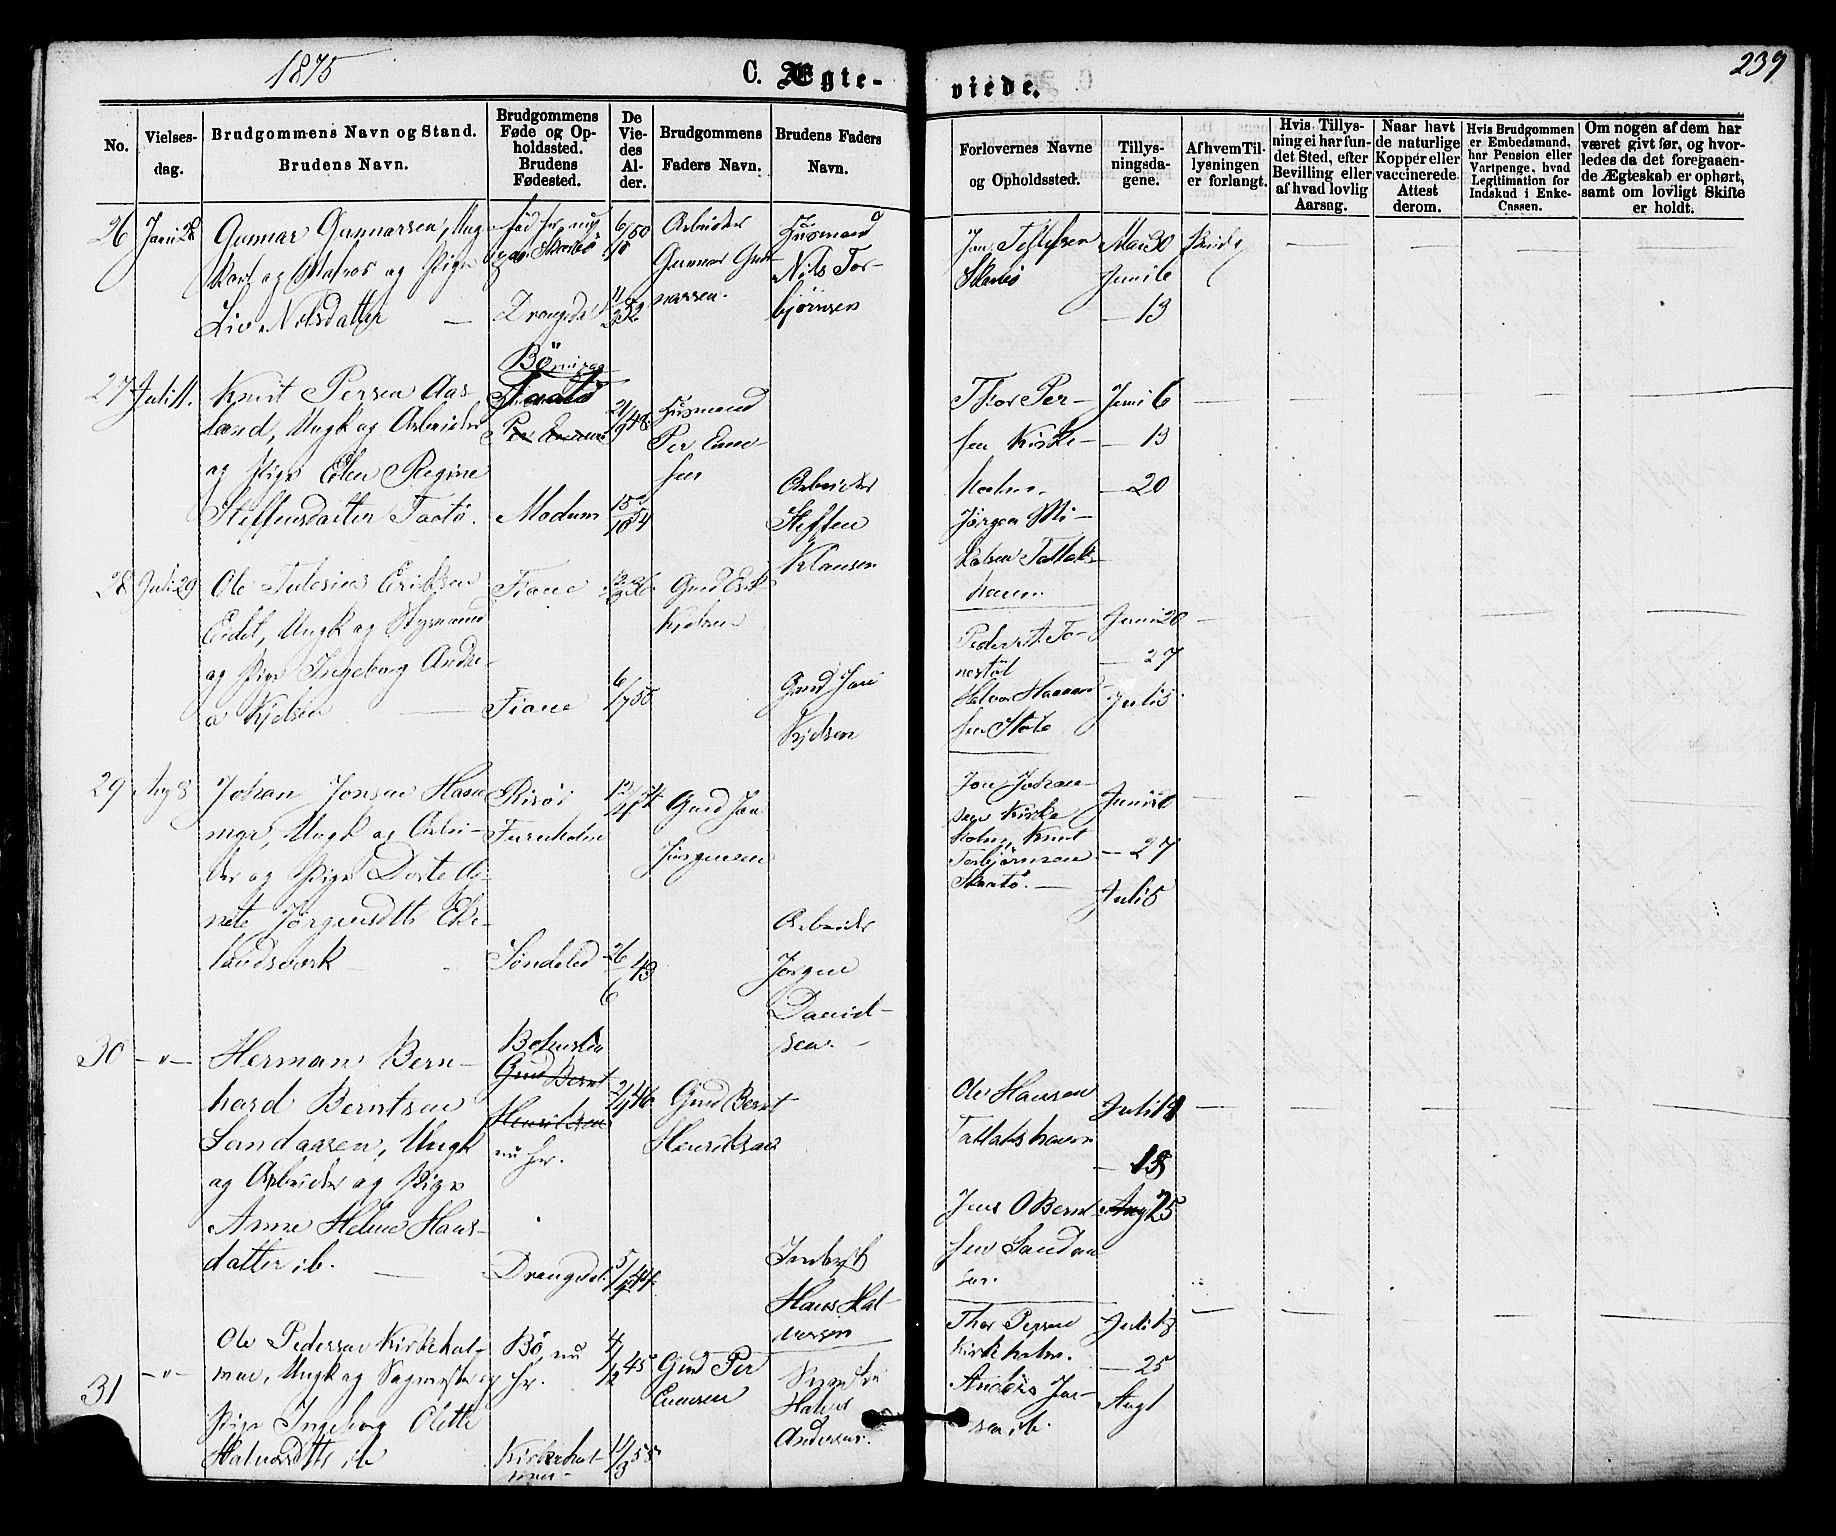 1875
C. Ægte-
viede.
239
No.
Vielses-
dag.
Brudgommens Navn og Stand.
Brudens Navn.
Brudgommens
Føde og Op-
holdssted.
Brudens
Fødested.
De
Vie-
des
Al-
der.
Brudgommens
Faders Navn.
Brudens Faders
Navn.
Forlovernes Navne
og Opholdssted.
Tillys-
ningsda-
gene.
Af hvem Til-
lysningen
er forlangt.
Hvis Tillys-
ning ei har fun-
det Sted, efter
Bevilling eller
af hvad lovlig
Aarsag.
Naar havt
de naturlige
Kopper eller
vaccinerede.
Attest
derom.
Hvis Brudgommen
er Embedsmand,
har Pension eller
Vartpenge, hvad
Legitimation for
Indskud i Enke-
Cassen.
Om nogen af dem har
været givt før, og hvor-
ledes da det foregaaen-
de Ægteskab er ophørt,
samt om lovligt Skifte
er holdt.
26
Gunnar Gunnarsen, Ung
og Pige
Liv Nilsdatter
Drangedal
6/10 50
11/2 52
Arbeider
Gunnar Gun
narsen.
Husmand
Nils Tor-
bjørnsen
Skaatø
Mai 30
Juni 6
— 13
27
Juli 11.
Knut Persen Aas
land, Ungk og Arbeider
og Pige Elen Regine
Steffensdatter Taatø.
Taatø
Modum
21/9 48
15/10 54
Husmand
Per Even
sen
Arbeider
Steffen
Klausen
Thor Per-
sen Kirke-
holm.
Jørgen Mi-
kalsen Tallaks-
havn.
Juni 6
— 13
— 20
28
Juli 29
Ole Tulesius Eriksen
Eidet, Ungk og Styrmand
og Pige Ingeborg Andre-
a Kjelsen
Fiane
Fiane
6/7 50
Gmd Erik
Kjelsen
Gmd Jon
Kjelsen
Juni 20
— 27
Juli 5
29
Aug 8
Johan Jonsen Ham
mer, Ungk og Arbei-
der og Pige Dorte Je-
nete Jørgensdtt Ege-
landsverk
Risør
Furuholm
Søndeled
26/6 43
Gmd Jon
Jørgensen
Arbeider
Jørgen
David-
sen
Jon Johan-
sen Kirke
holm, Knut
Torbjørnsen
Skaatø.
— 27
Juli 5
30
Herman Bern-
hard Berntsen
Sandaasen, Ungk
og Arbeider og Pige
Anne Helene Hans-
datter ib.
Gmd Bernt
Henriksen
nu hr.
Drangedal
Gmd Bernt
Henriksen
Inderst
Hans Hal-
vorsen
Ole Hansen
Tallakshavn
Jens O Bernt-
sen Sandaa
sen.
— 18
Aug 25
31
Ole Pedersen Kirkehol-
men, Ungk og Sagmester og
Pige Ingeborg Olette
Halvorsdtt ib
Bö, nu
hr.
Kirkehol-
men
4/2 45
Gmd Per
Evensen
Halvor
Andersen.
Thor Persen
Kirkeholm.
Anders Jen-
sen ib.
Juli 18
— 25
Aug 1